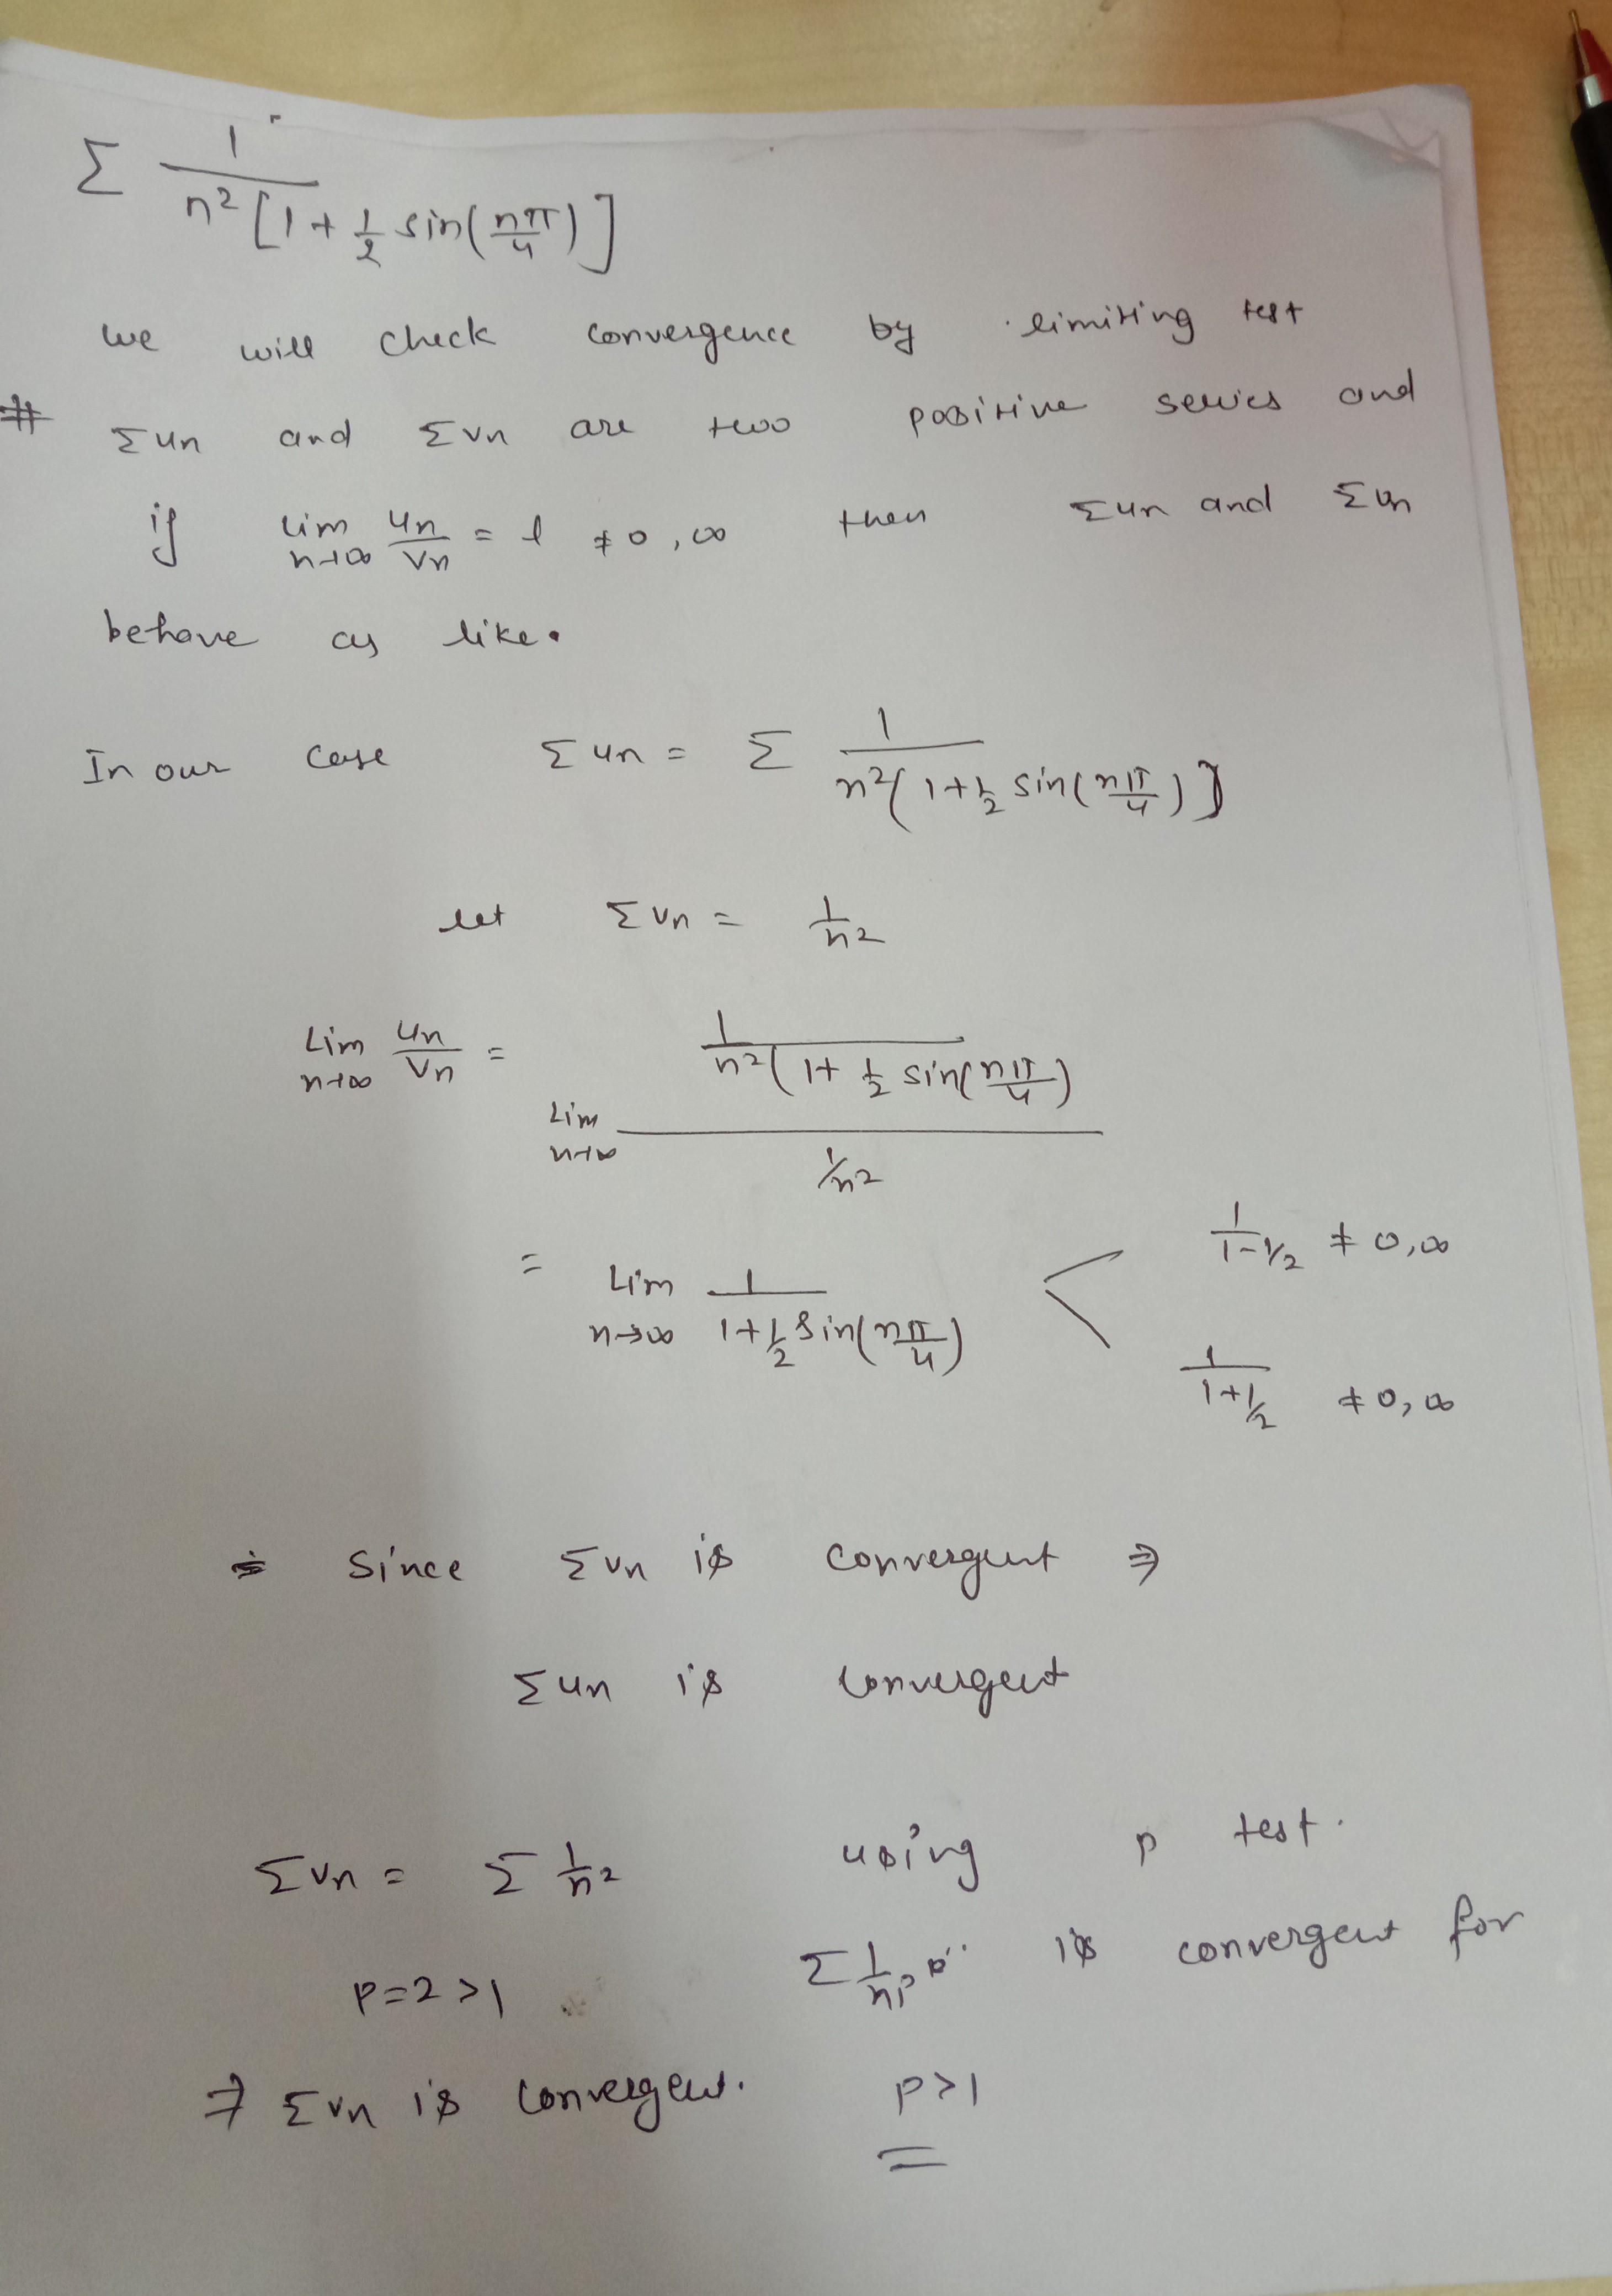 Σ 1 / n² [1 + 1/2 sin(nπ/4)]
we will check convergence by limiting test
# Σun and Σvn are two positive series and
if lim n→∞ un/vn = l ≠ 0, ∞ then Σun and Σvn
behave as like.
In our case Σun = Σ 1 / n²(1 + 1/2 sin(nπ/4)]
let Σvn = 1/n²
Lim n→∞ un/vn = Lim n→∞ 1 / n²(1 + 1/2 sin(nπ/4) / 1/n²
= Lim n→∞ 1 / 1 + 1/2 sin(nπ/4) < 1/1-1/2 ≠ 0, ∞
1/1+1/2 ≠ 0, ∞
Since Σvn is convergent ⇒
Σun is convergent
Σvn = Σ 1/n² using p test.
p=2>1 Σ 1/nᵖ is convergent for
⇒ Σvn is convergent. p>1